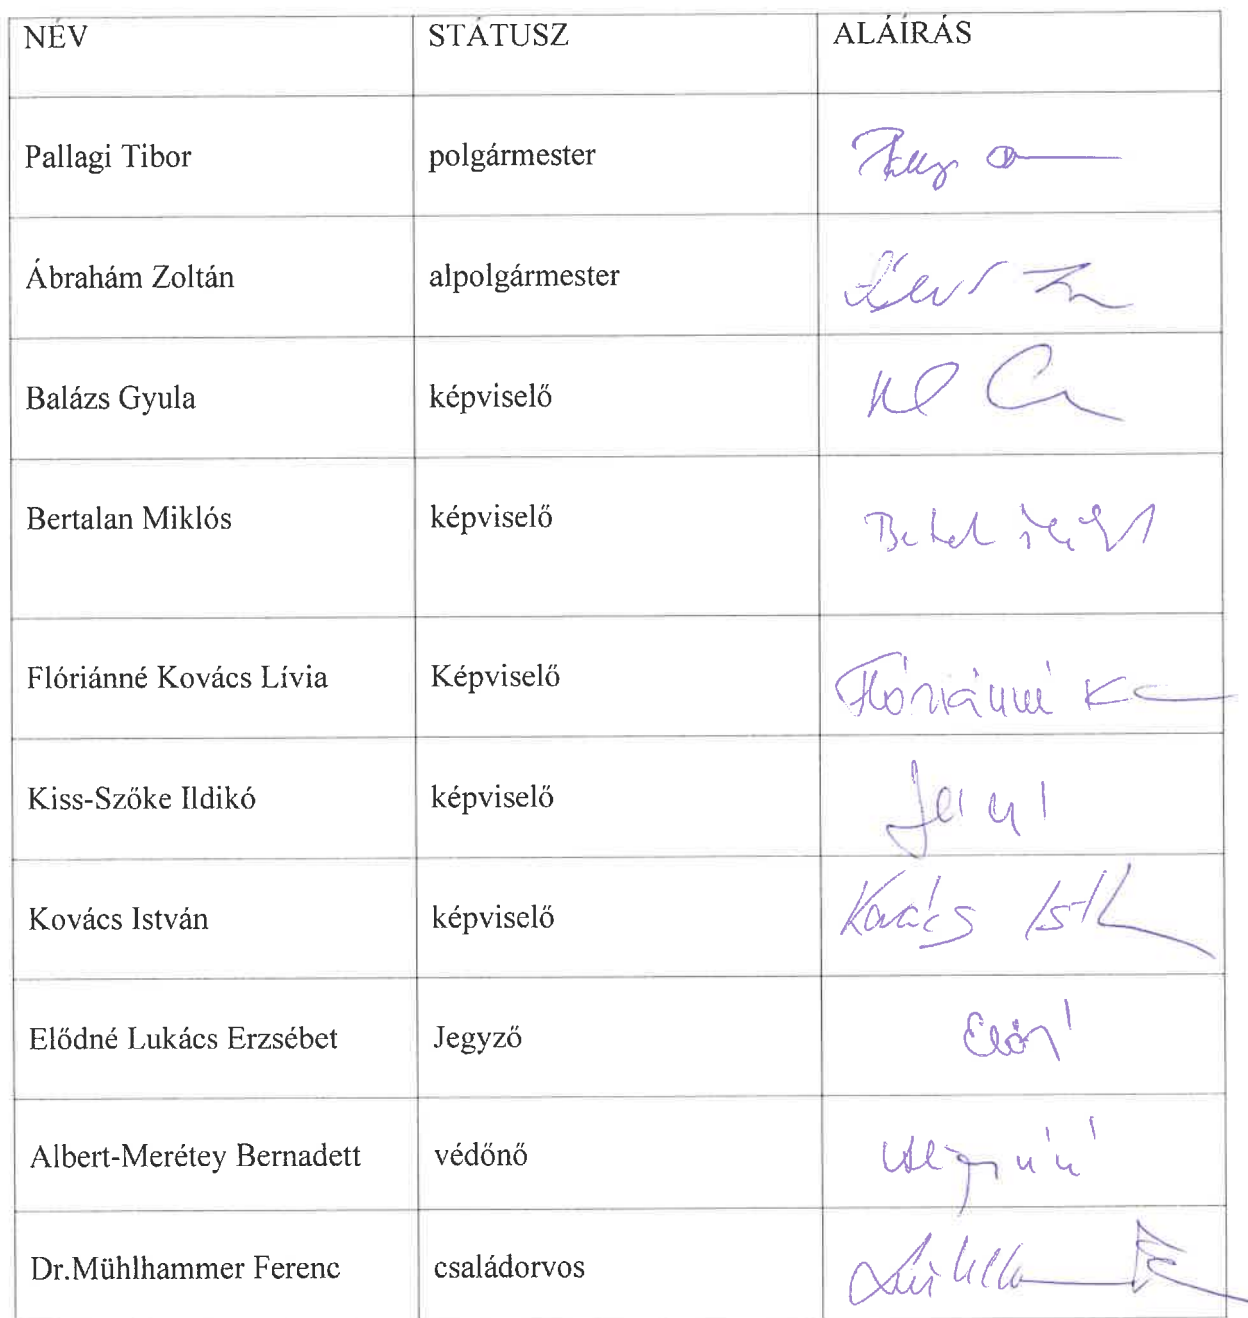 NÉV STÁTUSZ ALÁÍRÁS
Pallagi Tibor polgármester
Ábrahám Zoltán alpolgármester
Balázs Gyula képviselő
Bertalan Miklós képviselő
Flóriánné Kovács Lívia Képviselő Flóriánné K
Kiss-Szőke Ildikó képviselő
Kovács István képviselő Kovács
Elődné Lukács Erzsébet Jegyző
Albert-Merétey Bernadett védőnő
Dr.Mühlhammer Ferenc családorvos